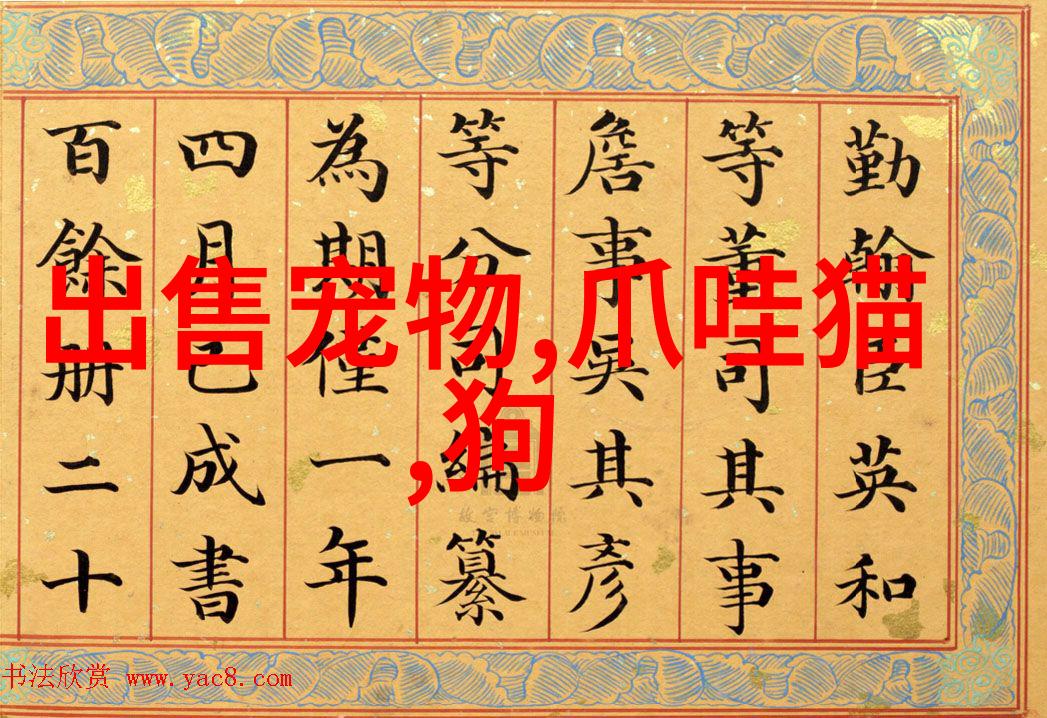 出售宠物,爪哇猫
,狗
勤翰臣英和
等董司其事
詹事吳其彥
等分司編纂
為期僅一年
四月已成書
百餘册二十
故宫博物院
书法欣赏 www.yac8.com